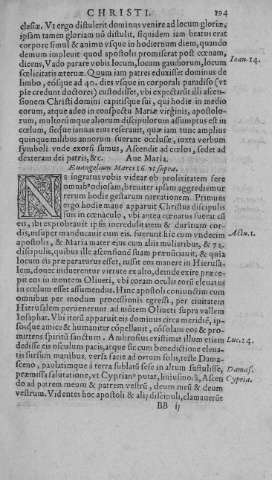 CHRISTI. 194
clesiæ. Vt ergo distulerit dominus venire ad locum gloriæ,
ipsam tamen gloriam nõ distulit, siquidem iam beatus erat
corpore simul & animo vsque in hodiernum diem, quando
demum impleuit quod apostolis promiserat post cœnam,
dicens, Vado parare vobis locum, locum gaudiorum, locum Ioan. 14.
fœlicitatis æternæ. Quum iam patres eduxisset dominus de
limbo, eosque ad 40. dies vsque in corporali paradiso (vt
pie credunt doctores) custodisset, vbi expectaruit illi ascen-
sionem Christi domini capitisque sui, qui hodie in medio
eorum, atque adeo in conspectu Mariæ virginis, apostolo-
rum, multorumque aliorum discipulorum assumptus est in
cœlum, sicque ianua eius reserauit, quæ iam tunc amplius
quinque millibus annorum fuerant occlusæ, iuxta verbum
symboli vnde exorsi sumus, Ascendit ad cœlos, sedet ad
dexteram dei patris, &c. Aue Maria.
Euangelium Marci 16 vt supra.
NE ingratus vobis videar ob prolixitatem sere
nomab⁹odiosam, breuiter ipsam aggrediemur
rerum hodie gestarum narrationem. Primum
ergo hodie mane apparuit Christus discipulis
suis in cœnaculo, vbi antea cœnatus fuerat cũ
eis, ibi exprobrauit ipsis incredulitatem & duritiam cor-
dis, insuper manducauit cum eis. fuerunt hic cum vndecim Actu. 1.
apostolis, & Maria mater eius cum aliis mulieribus, & 72.
discipuli, quibus ille ascensionẽ suam prænunciauit, & quia
locum iis præparaturus esset, iussit eos manere in Hierusa-
lem, donec induerentur virtute ex alto, deinde exire præce-
pit eos in montem Oliueti, vbi coram oculis eorũ eleuatus
in cœlum esset assumendus. Hinc apostoli coniunctim cum
omnibus per modum processionis egressi, per ciuitatem
Hierusalem peruenerunt ad mõtem Oliueti supra vallem
Iosaphat. Vbi iterũ apparuit eis dominus circa meridiẽ, ip-
sosque amice & humaniter cõpellauit, cõsolans eos & pro-
mittens spiritũ sanctum. Ambrosius existimat illum etiam Luc. 24.
dedisse eis osculum pacis, atque sic cum benedictione eleua-
tis sursum manibus, versa facie ad ortum solis, teste Dama-
sceno, paulatimque à terra sublatũ sese in altum sustulisse, Damas.
præmissa salutatione, vt Cyprian⁹ putat, huiusmo- Cypria.
do ad patrem meum & patrem vestrũ, deum meũ & deum
vestrum. Videntes hoc apostoli & alij discipuli, clamauerunt
BB ij